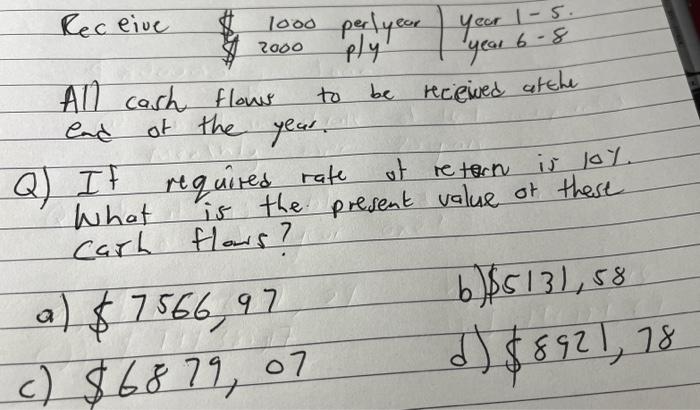 Receive $ 1000 per/year | year 1-5.
$ 2000 p/y | year 6-8
All cash flows to be received at the
end of the year.
Q) If required rate of retern is 10%.
What is the present value of these
cash flows?
a) $7566,97 b) $5131,58
c) $6879,07 d) $8921,78